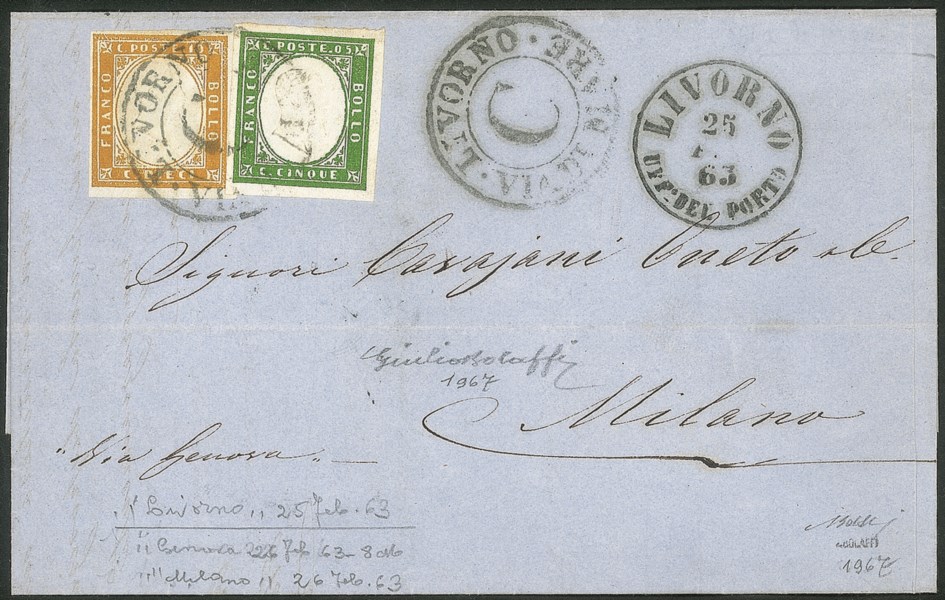 C. POSTE. 10
FRANCO
BOLLO
C. DIECI
C. POSTE. 05
FRANCO
BOLLO
C. CINQUE
LIVORNO
C
LIVORNO · VIA DI MARE ·
C
LIVORNO
25
63
UFF° DEL PORTO
Signori Cavajani Oneto & C.
Giulio Bolaffi
1967
Milano
"Via Genova"
"Livorno" 25 Feb. 63
"Genova 26 Feb 63 - 8
"Milano" 26 Feb. 63
ABOLAFFI
1967